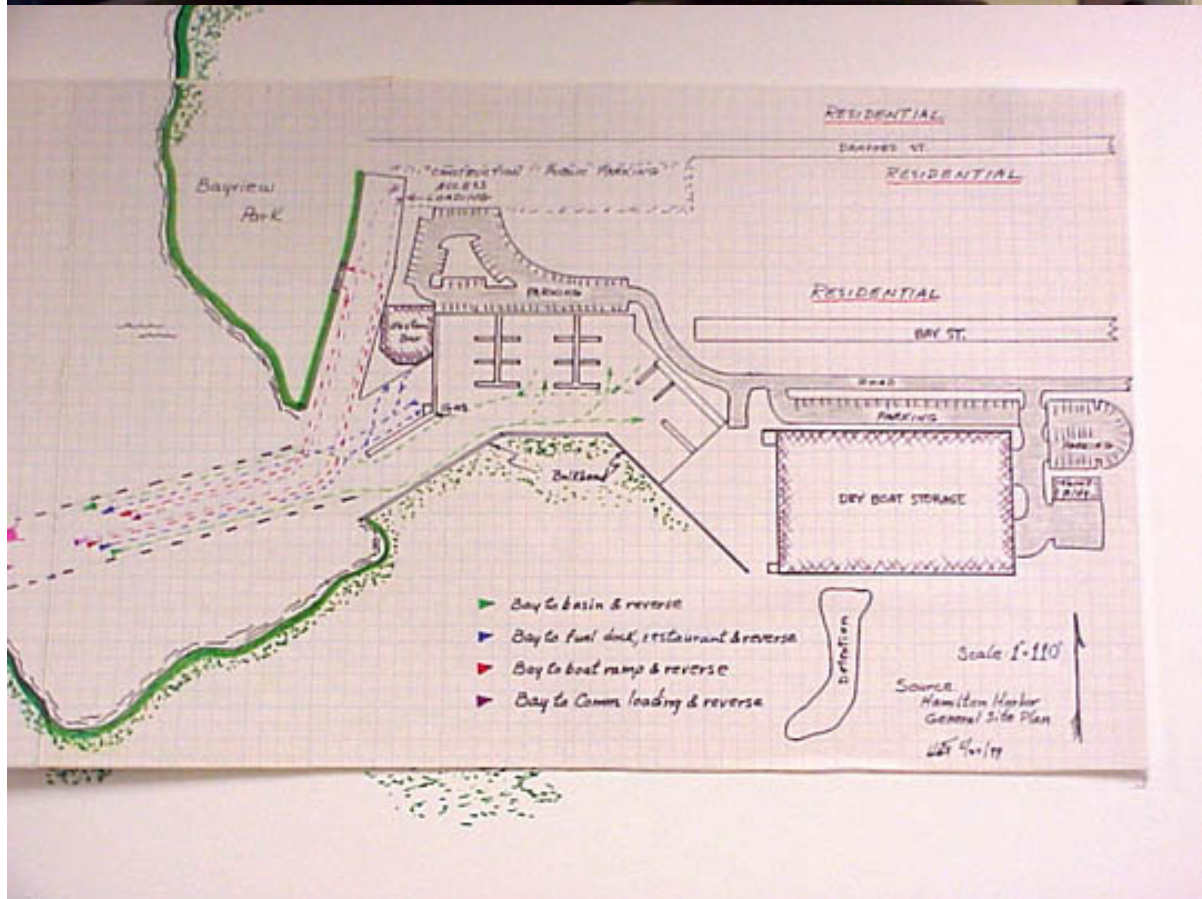 RESIDENTIAL
DANFORD ST.
RESIDENTIAL
CONSTRUCTION PUBLIC PARKING
ACCESS
LOADING
Bayview
Park
PARKING
RESIDENTIAL
BAY ST.
GAS
ROAD
PARKING
PARKING
Bulkhead
DRY BOAT STORAGE
BLDG.
Bay to basin & reverse
Bay to fuel dock, restaurant & reverse
Bay to boat ramp & reverse
Bay to Comm loading & reverse
Detention
Scale 1"=110'
Source
Hamilton Harbor
General Site Plan